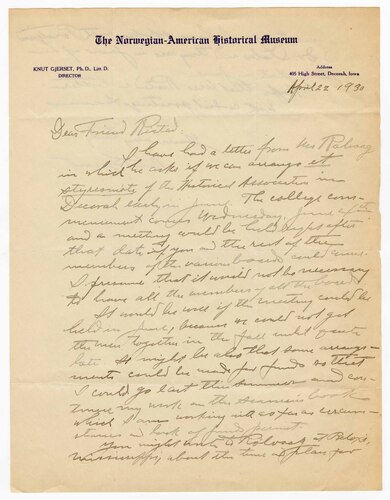 The Norwegian-American Historical Museum
KNUT GJERSET, Ph. D., Litt. D.
DIRECTOR
Address
405 High Street, Decorah, Iowa
April 22 1930
Dear Friend Ristad:
I have had a letter from
in which he asks if we can arrange
of the Historical Association in
Decorah early in June. The college com-
mencement comes Wednesday, June
and a meeting could be held right after
that date, if you and the rest of the
members of the various boards could come.
I presume that it would not be necessary
to have all the members of all the boards.
It would be well if the meeting could be
held in June, because we could not get
the men together in the fall until quite
late. It might be also that some arrange-
ments could be made for funds so that
I could go east this summer and con-
tinue my work on the seamen's book
which I am working on as far as circum-
stances and lack of funds permit.
You might write to Rolvaag at Biloxi,
Mississippi, about the time and plan for